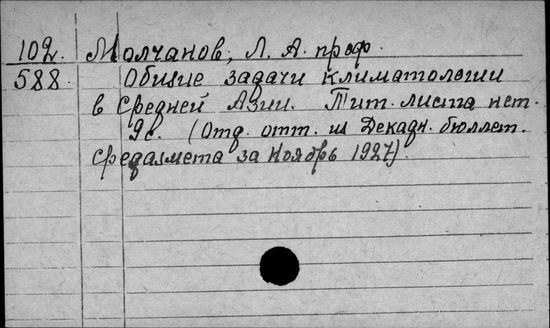 102. Молчанов, Л. А. проф.
588. Общие задачи климатологии
в Средней Азии. Тит. листа нет.
9с. (Отд. отт. из Декадн. бюллет.
Средазмета за Ноябрь 1927).